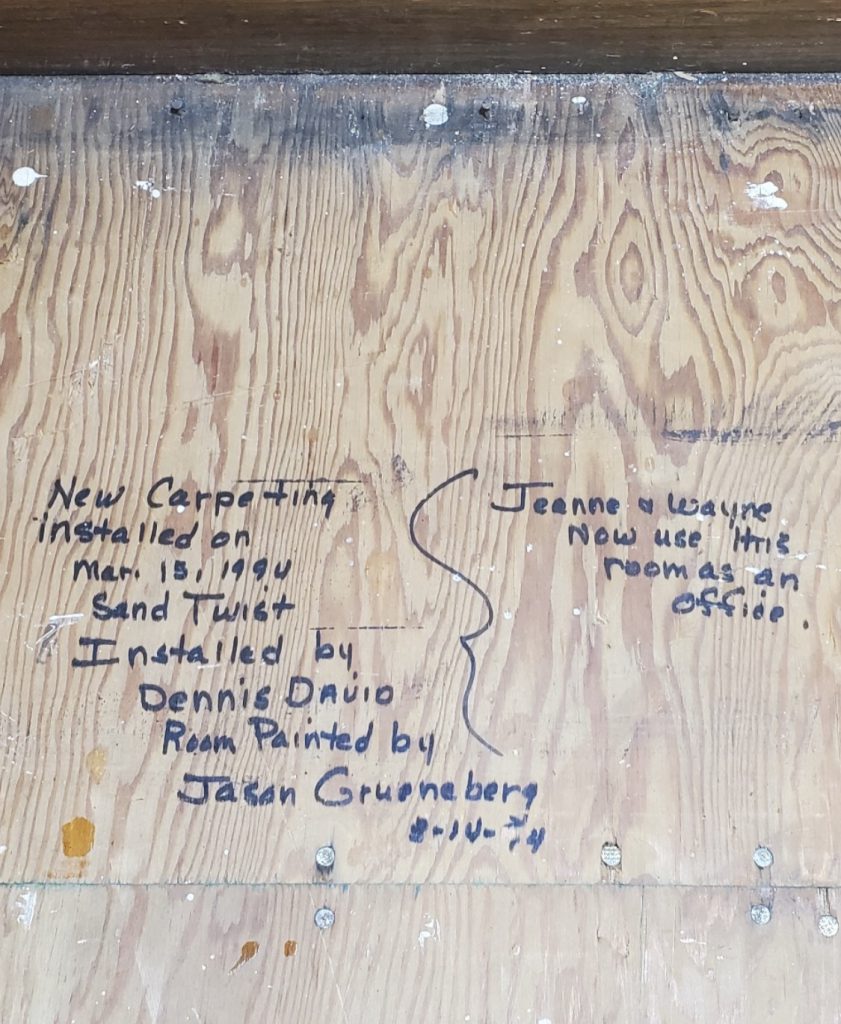 New Carpeting
installed on
Mar. 15, 1994
Sand Twist
Installed by
Dennis DAVID
Room Painted by
Jason Grueneberg
Jeanne & Wayne
Now use this
room as an
office.